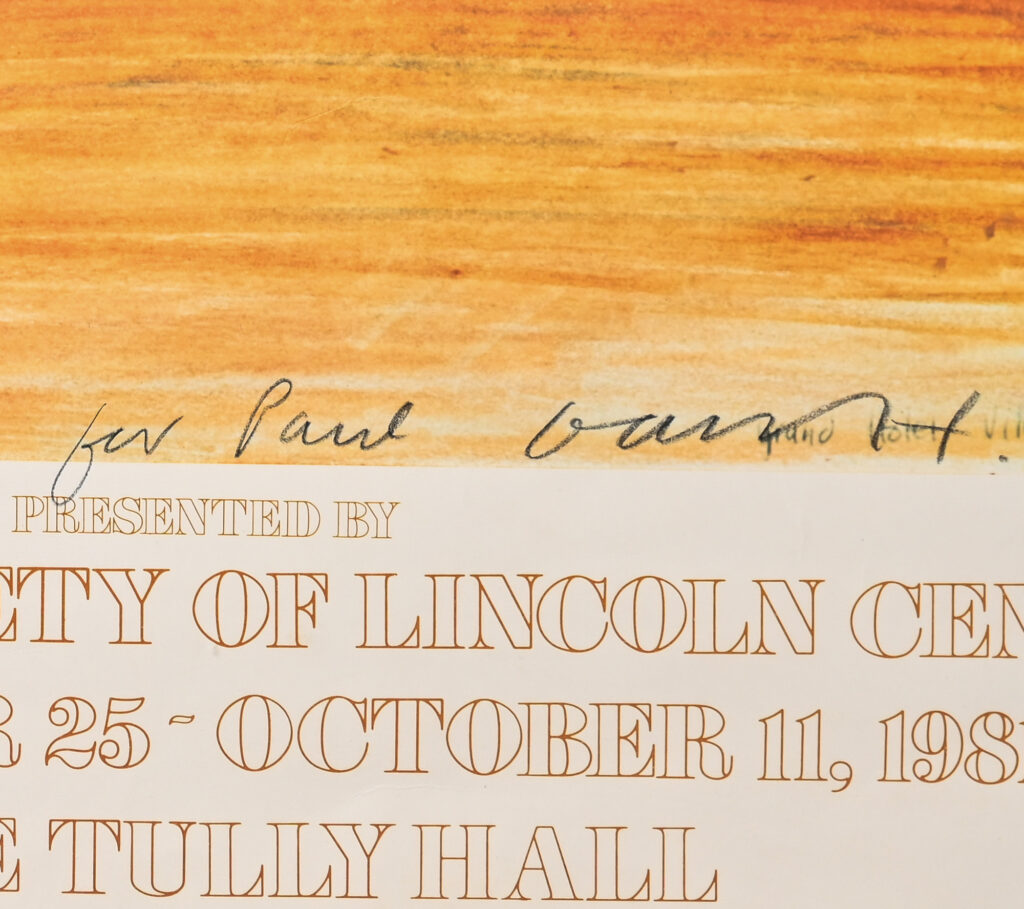 for Paul David H.
Grand Hotel Vit
PRESENTED BY
ETY OF LINCOLN CEN
R 25 - OCTOBER 11, 1981
E TULLY HALL